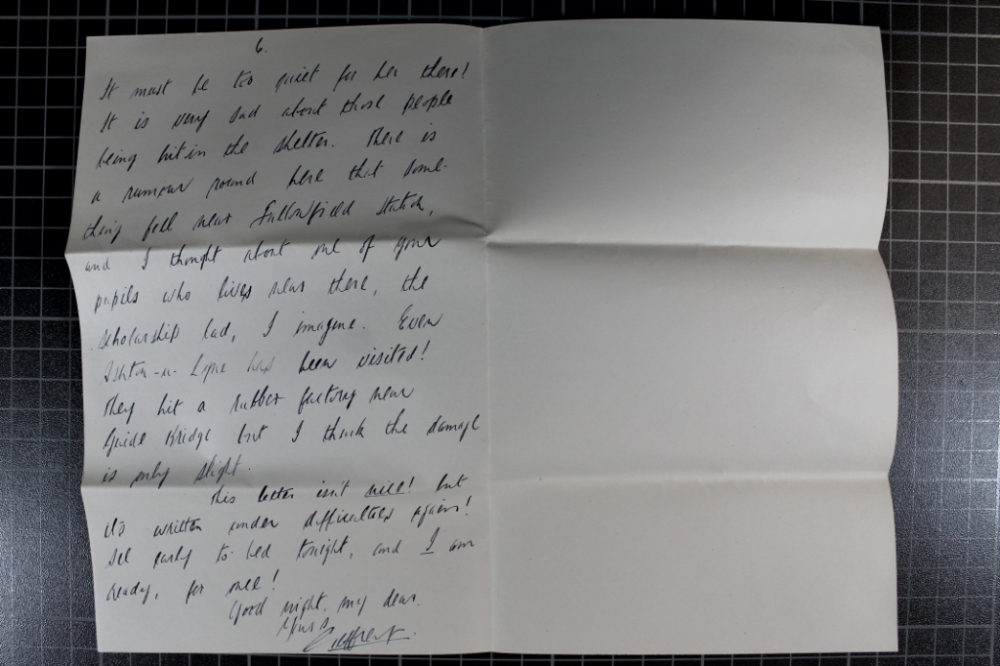 6.
It must be too quiet for her there!
It is very sad about those people
being hit in the shelter. There is
a rumour round here that some-
thing fell near Fallowfield Station,
and I thought about one of your
pupils who lives near there, the
scholarship lad, I imagine. Even
Ashton-u-Lyne has been visited!
They hit a rubber factory near
Guide Bridge but I think the damage
is only slight.
This letter isn't nice! but
it's written under difficulties again!
All early to bed tonight, and I am
ready, for one!
Good night, my dear.
Yours
Geoffrey.